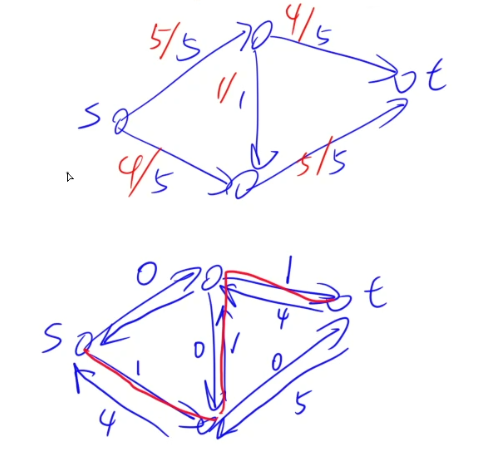 5/5
4/5
1/1
s
t
4/5
5/5
0
1
t
4
s
0
1
1
0
4
5